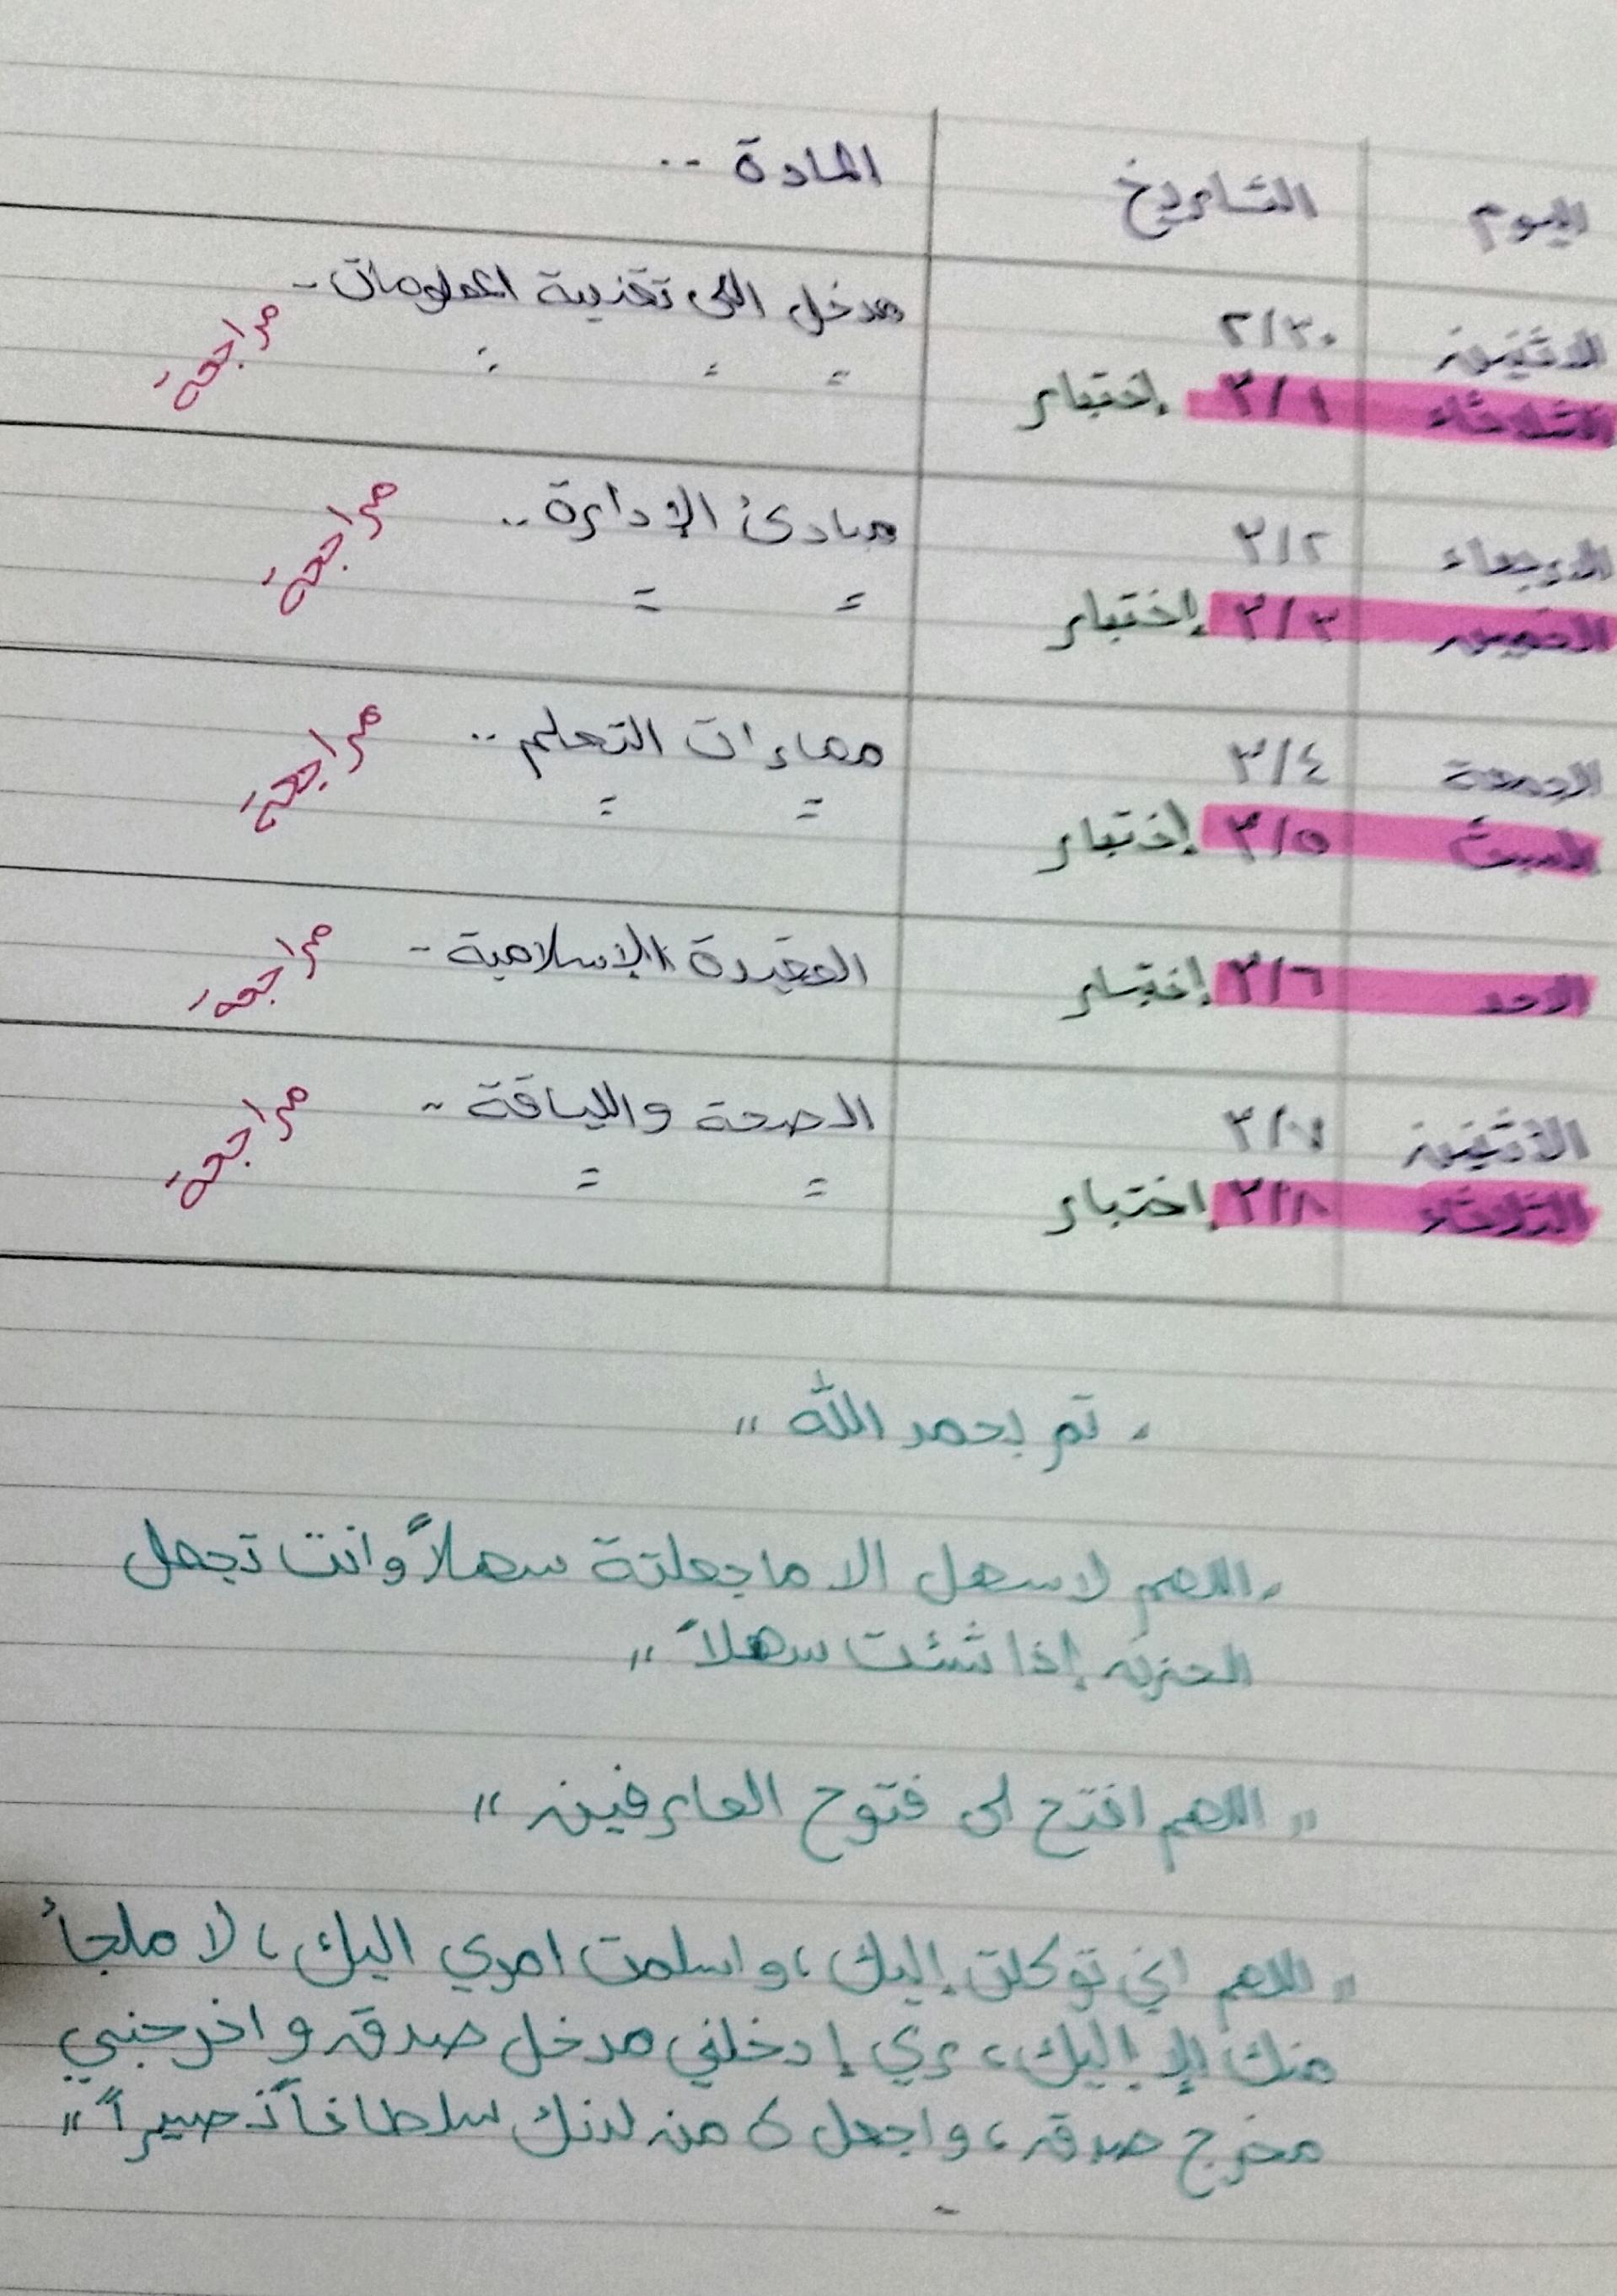 اليوم التاريخ المادة ..
الاثنين ٢/٣٠ مدخل الى تقنية المعلومات - مراجعة
الثلاثاء ٣/١ إختبار = = =
الاربعاء ٣/٢ مبادئ الإدارة .. مراجعة
الخميس ٣/٣ إختبار = =
الجمعة ٣/٤ مهارات التعلم .. مراجعة
السبت ٣/٥ إختبار = =
الاحد ٣/٦ إختبار العقيدة الإسلامية - مراجعة
الاثنين ٣/٧ الصحة واللياقة - مراجعة
الثلاثاء ٣/٨ اختبار = =
، تم بحمد الله ,,
، اللهم لا سهل الا ما جعلتة سهلاً وانت تجعل
الحزن إذا شئت سهلاً ,,
,, اللهم افتح لى فتوح العارفين ,,
,, اللهم اني توكلت إليك ، واسلمت امري اليك ، لا ملجأ
منك إلا إليك ، ربي إدخلني مدخل صدق و اخرجني
مخرج صدق ، واجعل لى من لدنك سلطاناً نصيراً ,,